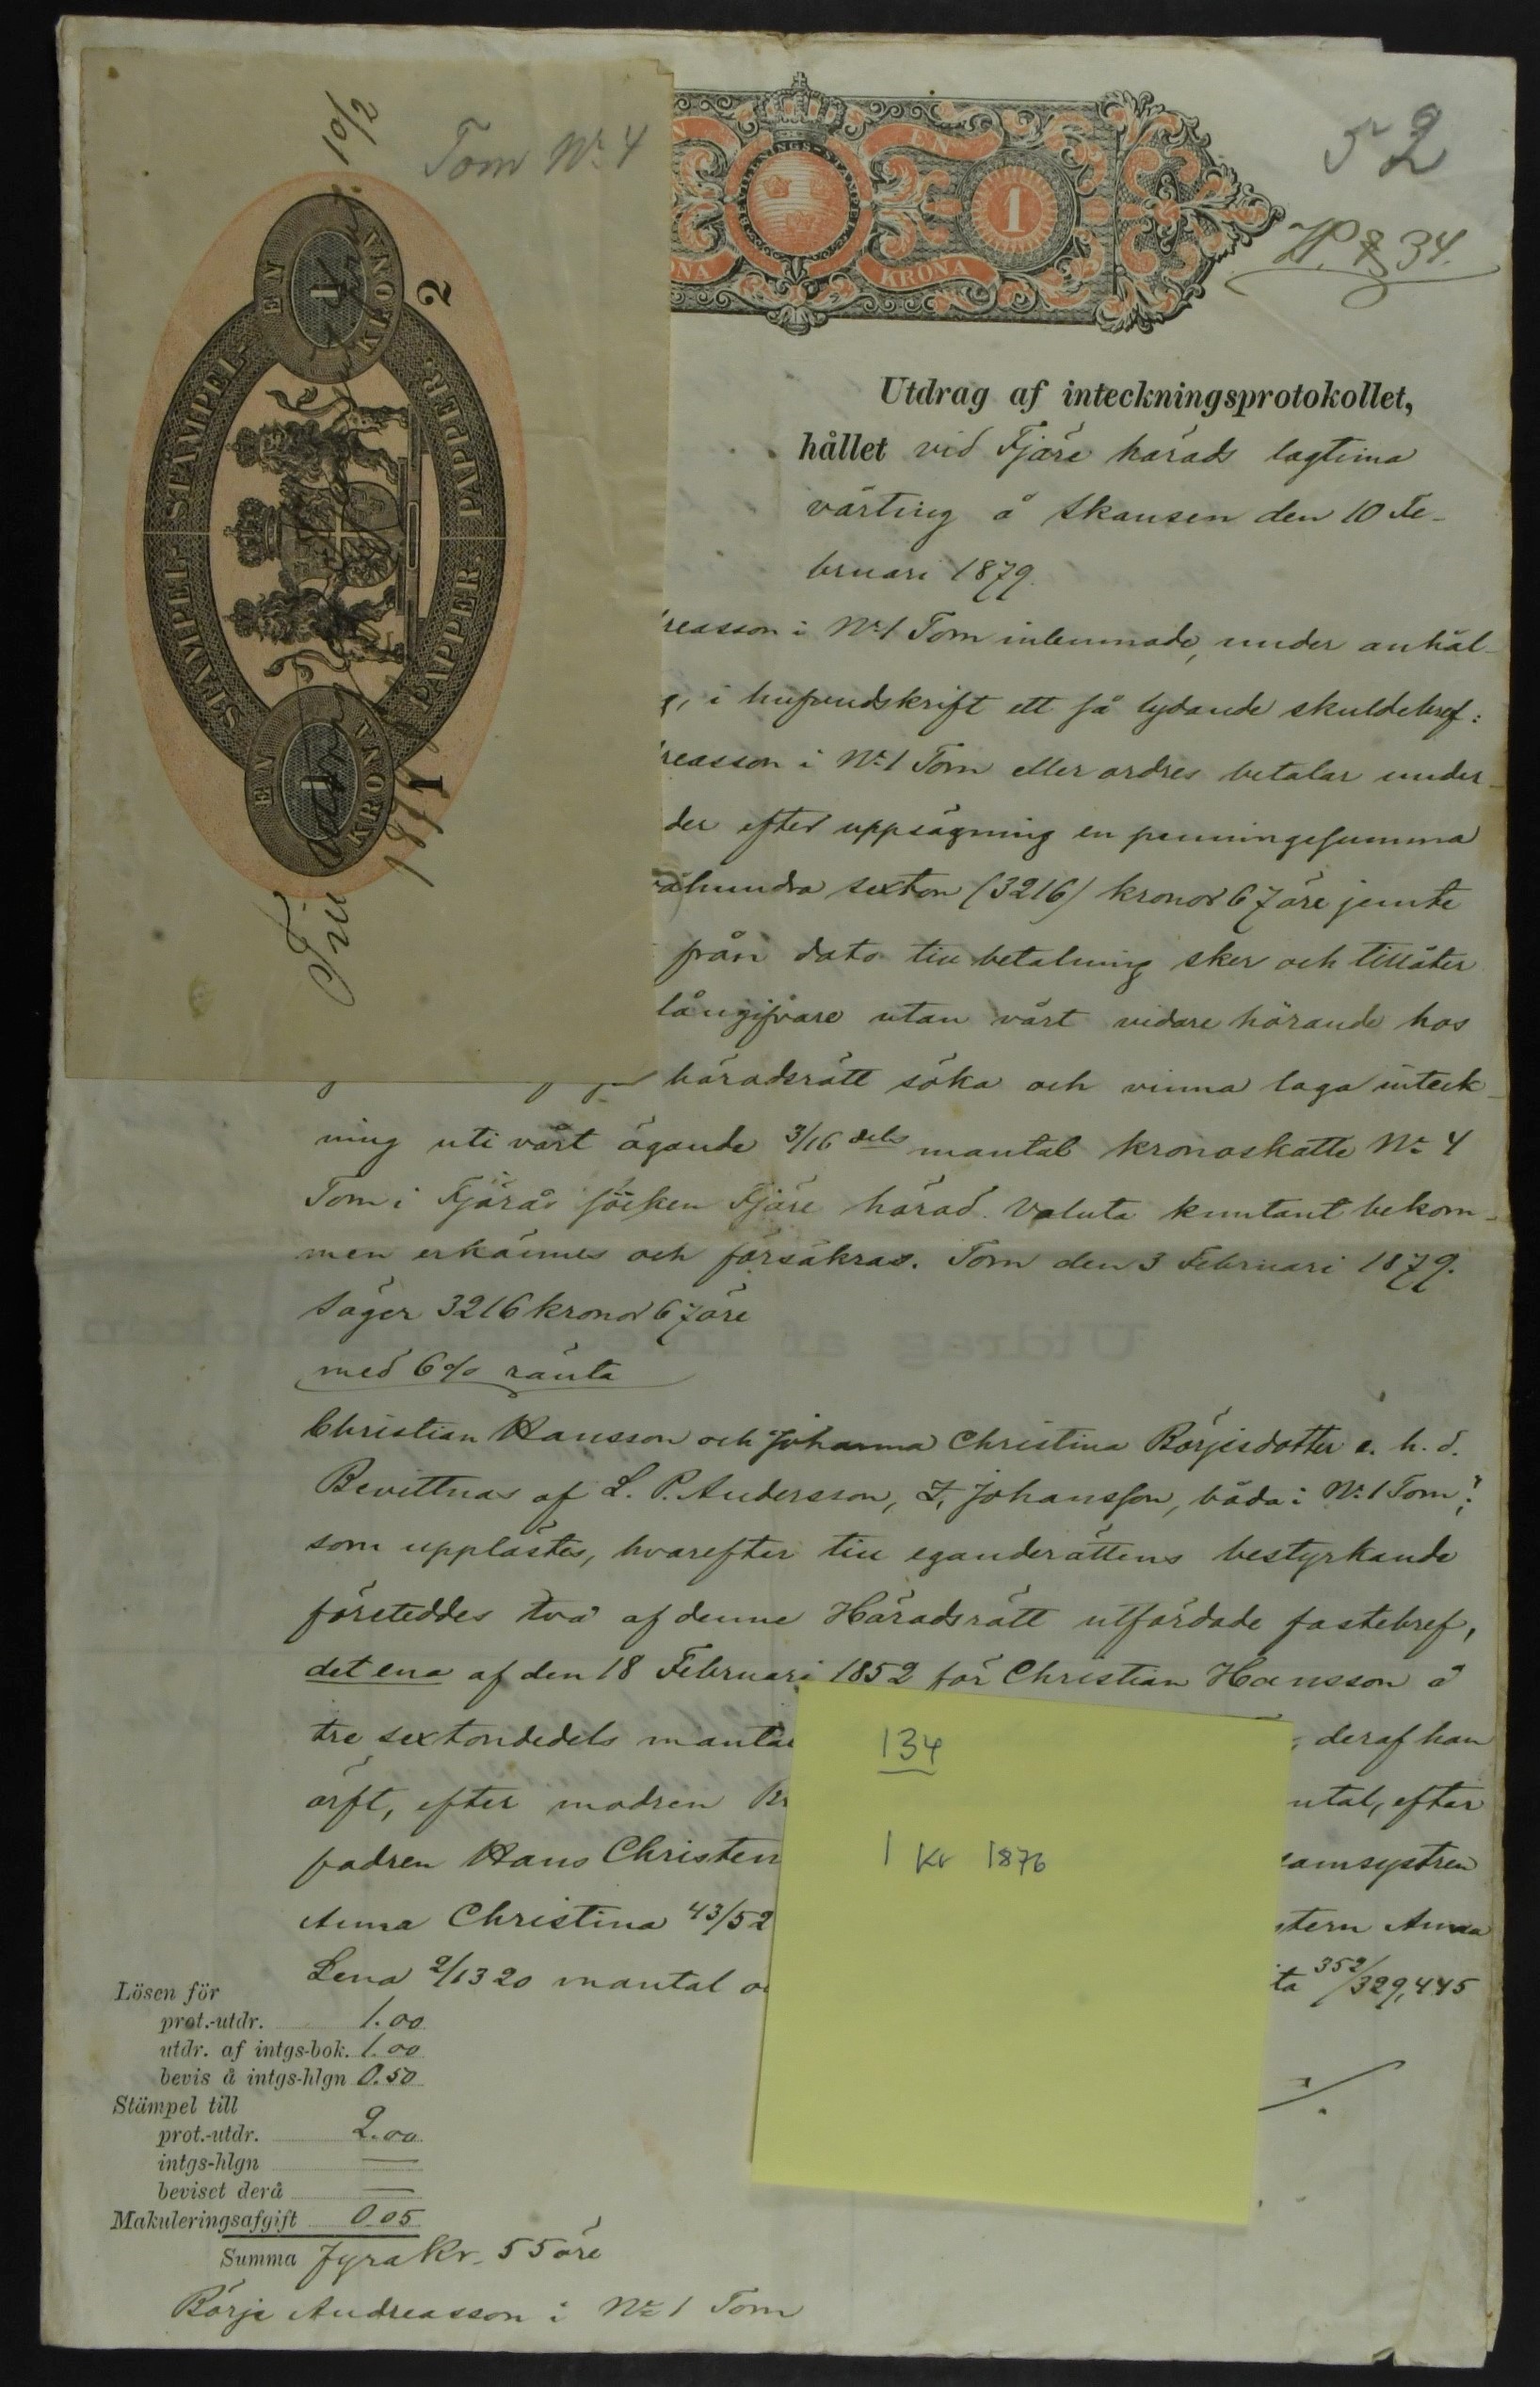 Tom No 4
10/2
STÄMPEL- STÄMPEL- PAPPER. PAPPER
EN 1 KRONA
EN 1 KRONA
1 2
EN
KRONA
1
52
34.
Utdrag af inteckningsprotokollet,
hållet vid Fjäre härads lagtima
vårting å Skansen den 10 Fe-
bruari 1879.
reasson i No 1 Tom inlemnade, under anhål-
g, i hufvudskrift ett så lydande skuldebref:
reasson i No 1 Tom eller ordres betalar under-
der efter uppsägning en penningesumma
åhundra sexton (3216) kronor 67 öre jemte
från dato till betalning sker och tillåter
långifvare utan vårt vidare hörande hos
häradsrätt söka och vinna laga inteck-
ning uti vårt ägande 3/16 dels mantal kronoskatte No 4
Tom i Fjärås socken Fjäre härad. Valuta kontant bekom-
men erkännes och försäkras. Tom den 3 Februari 1879.
Säger 3216 kronor 67 öre
med 6% ränta
Christian Hansson och Johanna Christina Börjesdotter e. h. d.
Bevittnas af L. P. Andersson, J. Johansson, båda i No 1 Tom";
som upplästes, hvarefter till eganderättens bestyrkande
företeddes två af denne Häradsrätt utfärdade fastebref,
det ena af den 18 Februari 1852 för Christian Hansson å
tre sextondedels mantal , deraf han
ärft, efter modren ntal, efter
fadren Hans Christen samsystren
Anna Christina 43/52 stern Anna
Lena 2/1320 mantal o ta 352/329,445
134
1 kr 1876
Lösen för
prot.-utdr. 1.00
utdr. af intgs-bok. 1.00
bevis å intgs-hlgn 0.50
Stämpel till
prot.-utdr. 2.00
intgs-hlgn —
beviset derå —
Makuleringsafgift 0.05
Summa Fyra Kr. 55 öre
Börje Andreasson i No 1 Tom